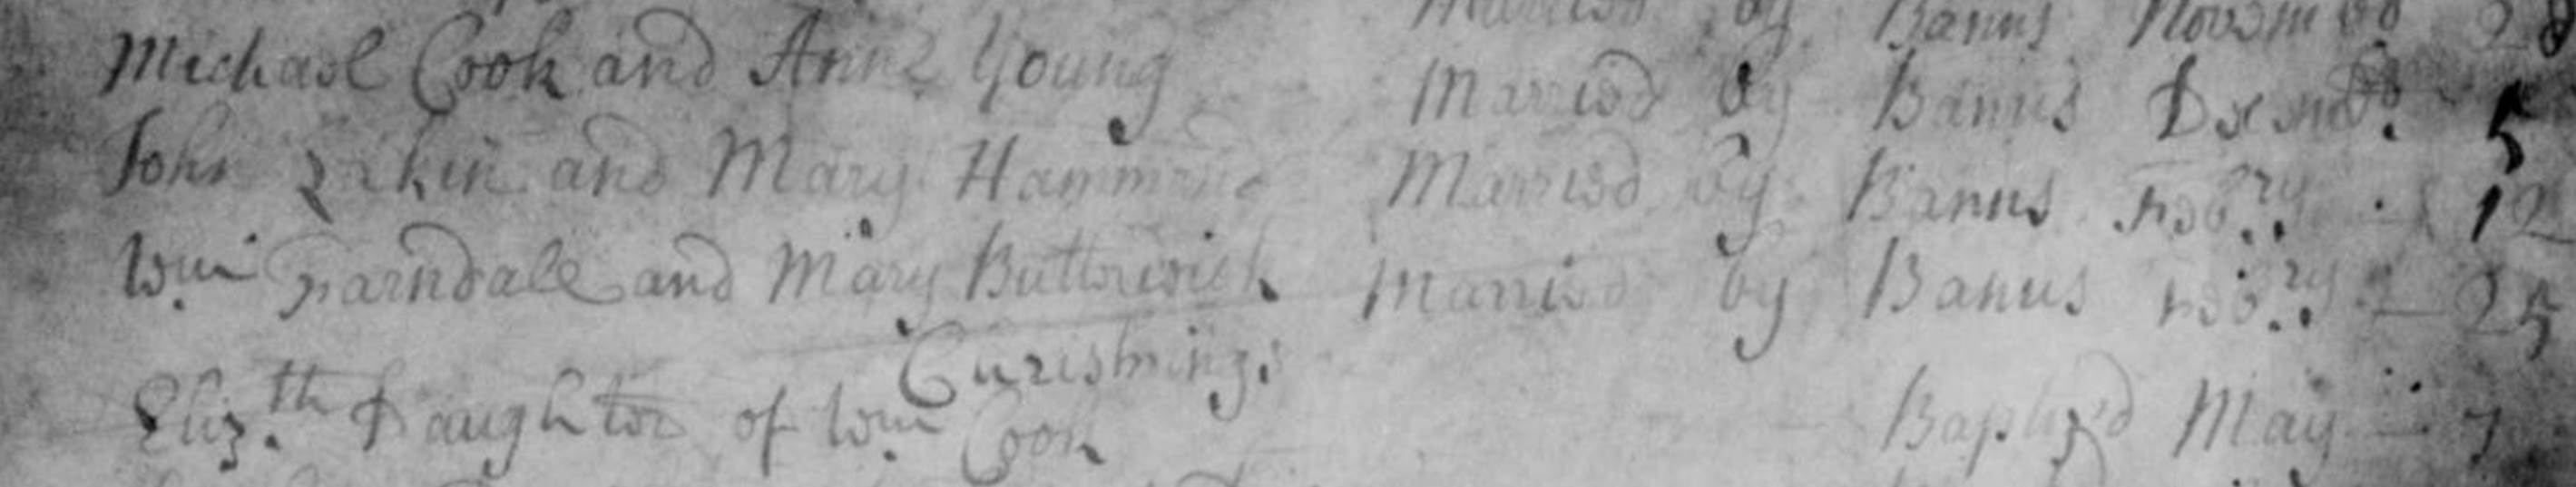 Married by Banns Novembr 28
Michael Cook and Anne Young Married by Banns Decmbr. 5
John Lakin and Mary Hammond Married by Banns Febry. 12
Wm. Farndale and Mary Butterwick Married by Banns Febry. 25
Curisnings
Eliz.th Daughter of Wm. Cook Baptiz'd May 7